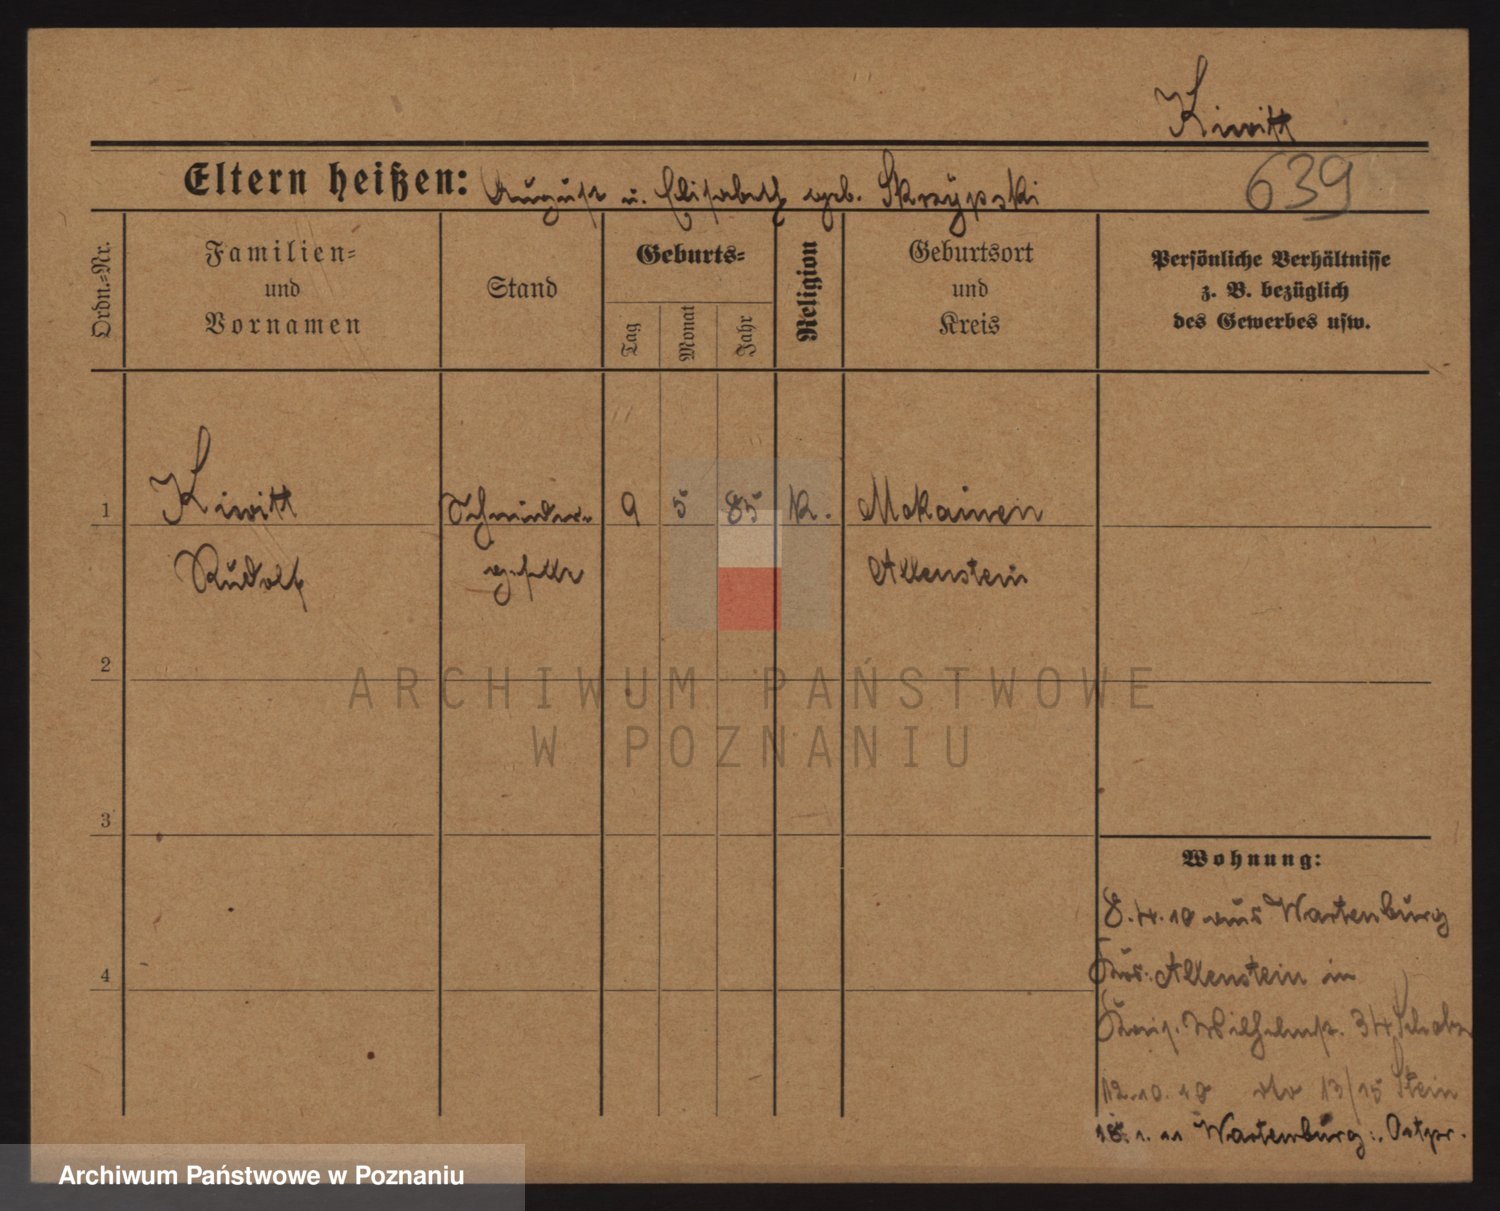 Kiwitt
Eltern heißen: August u. Elisabeth geb. Skrzypski
639
Ordn.=Nr.
Familien=
und
Vornamen
Stand
Geburts=
Tag
Monat
Jahr
Religion
Geburtsort
und
Kreis
Persönliche Verhältnisse
z. B. bezüglich
des Gewerbes usw.
1 Kiwitt Schneider- 9 5 85 K. Mokainen
Rudolf geselle Allenstein
2
ARCHIWUM PAŃSTWOWE
W POZNANIU
3
Wohnung:
8.4.10 aus Wartenburg
Krs. Allenstein in
Kais. Wilhelmstr. 34
4
12.10.10 dto 13/15 Stein
18.1.11 Wartenburg: Ostpr.
Archiwum Państwowe w Poznaniu